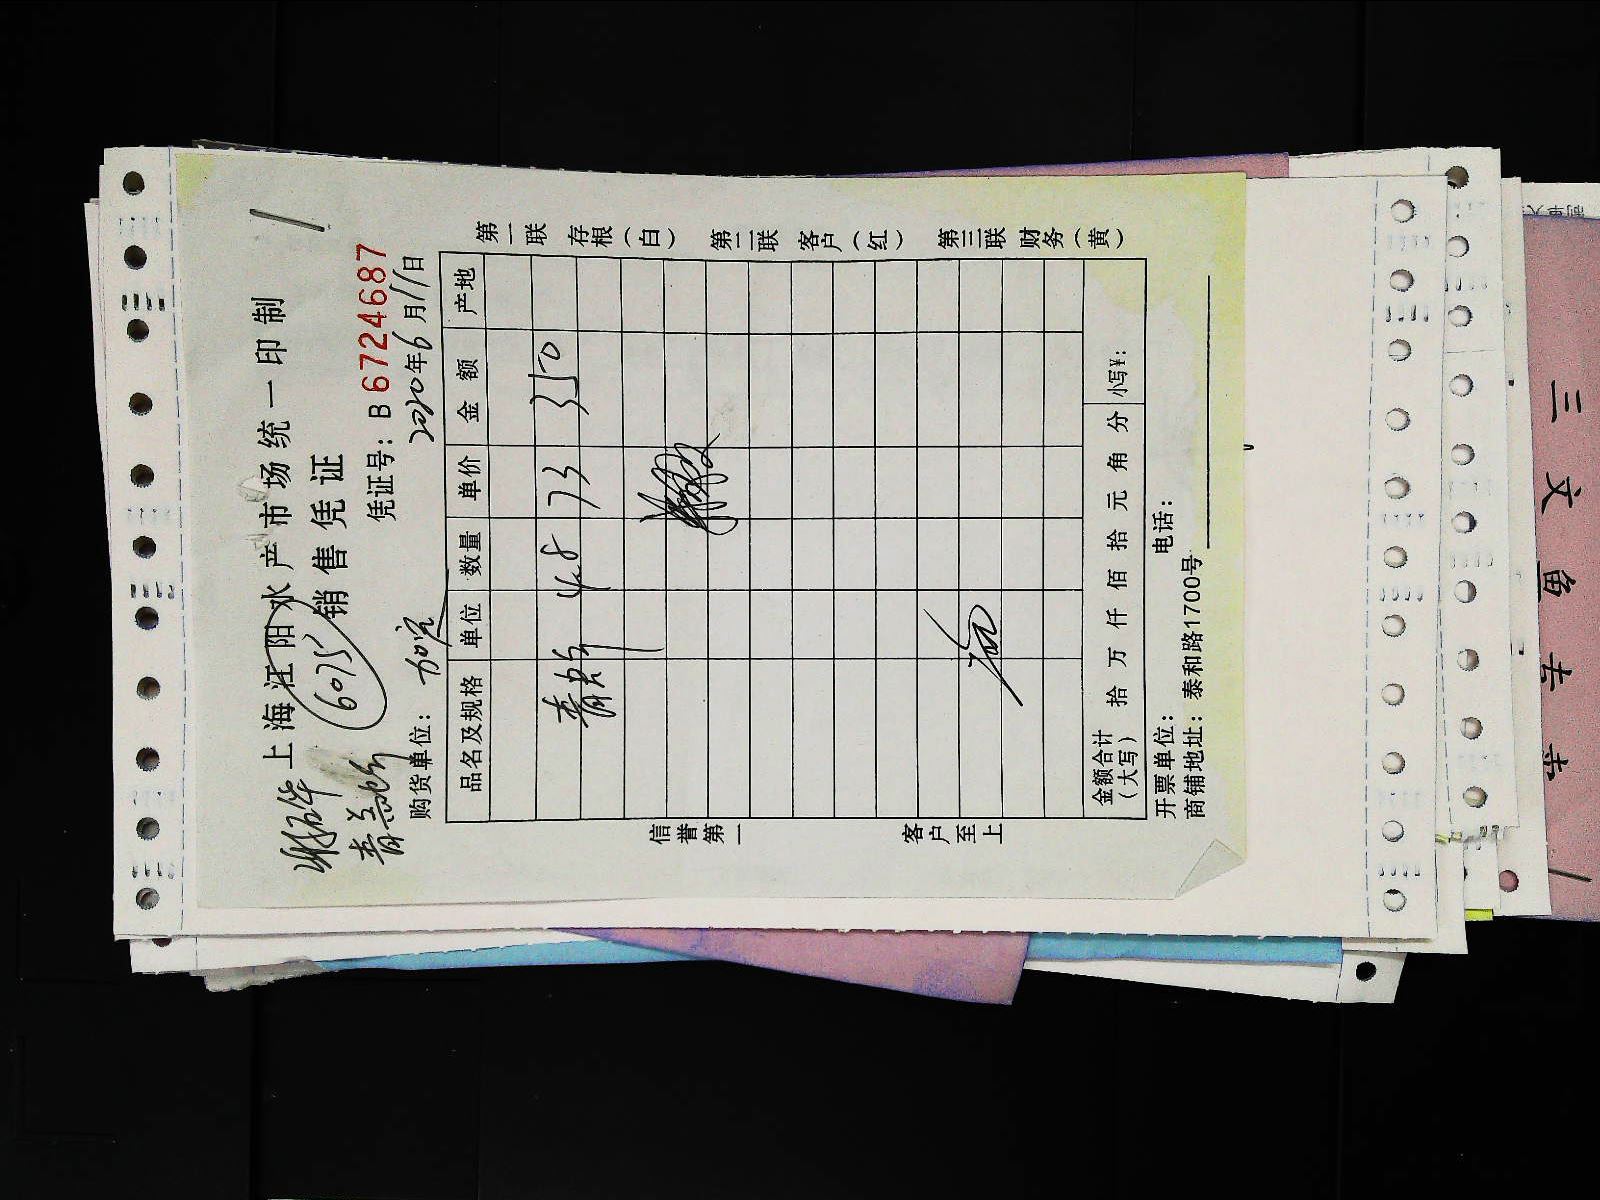 上海江阳水产市场统一印制
6075 销售凭证
凭证号：B 6724687
购货单位：
2020年6月11日
品名及规格 单位 数量 单价 金额 产地
青 4.8 73 350
金额合计（大写） 拾 万 仟 佰 拾 元 角 分 小写¥：
开票单位： 电话：
商铺地址：泰和路1700号
第一联 存根（白） 第二联 客户（红） 第三联 财务（黄）
信誉第一 客户至上
三文鱼